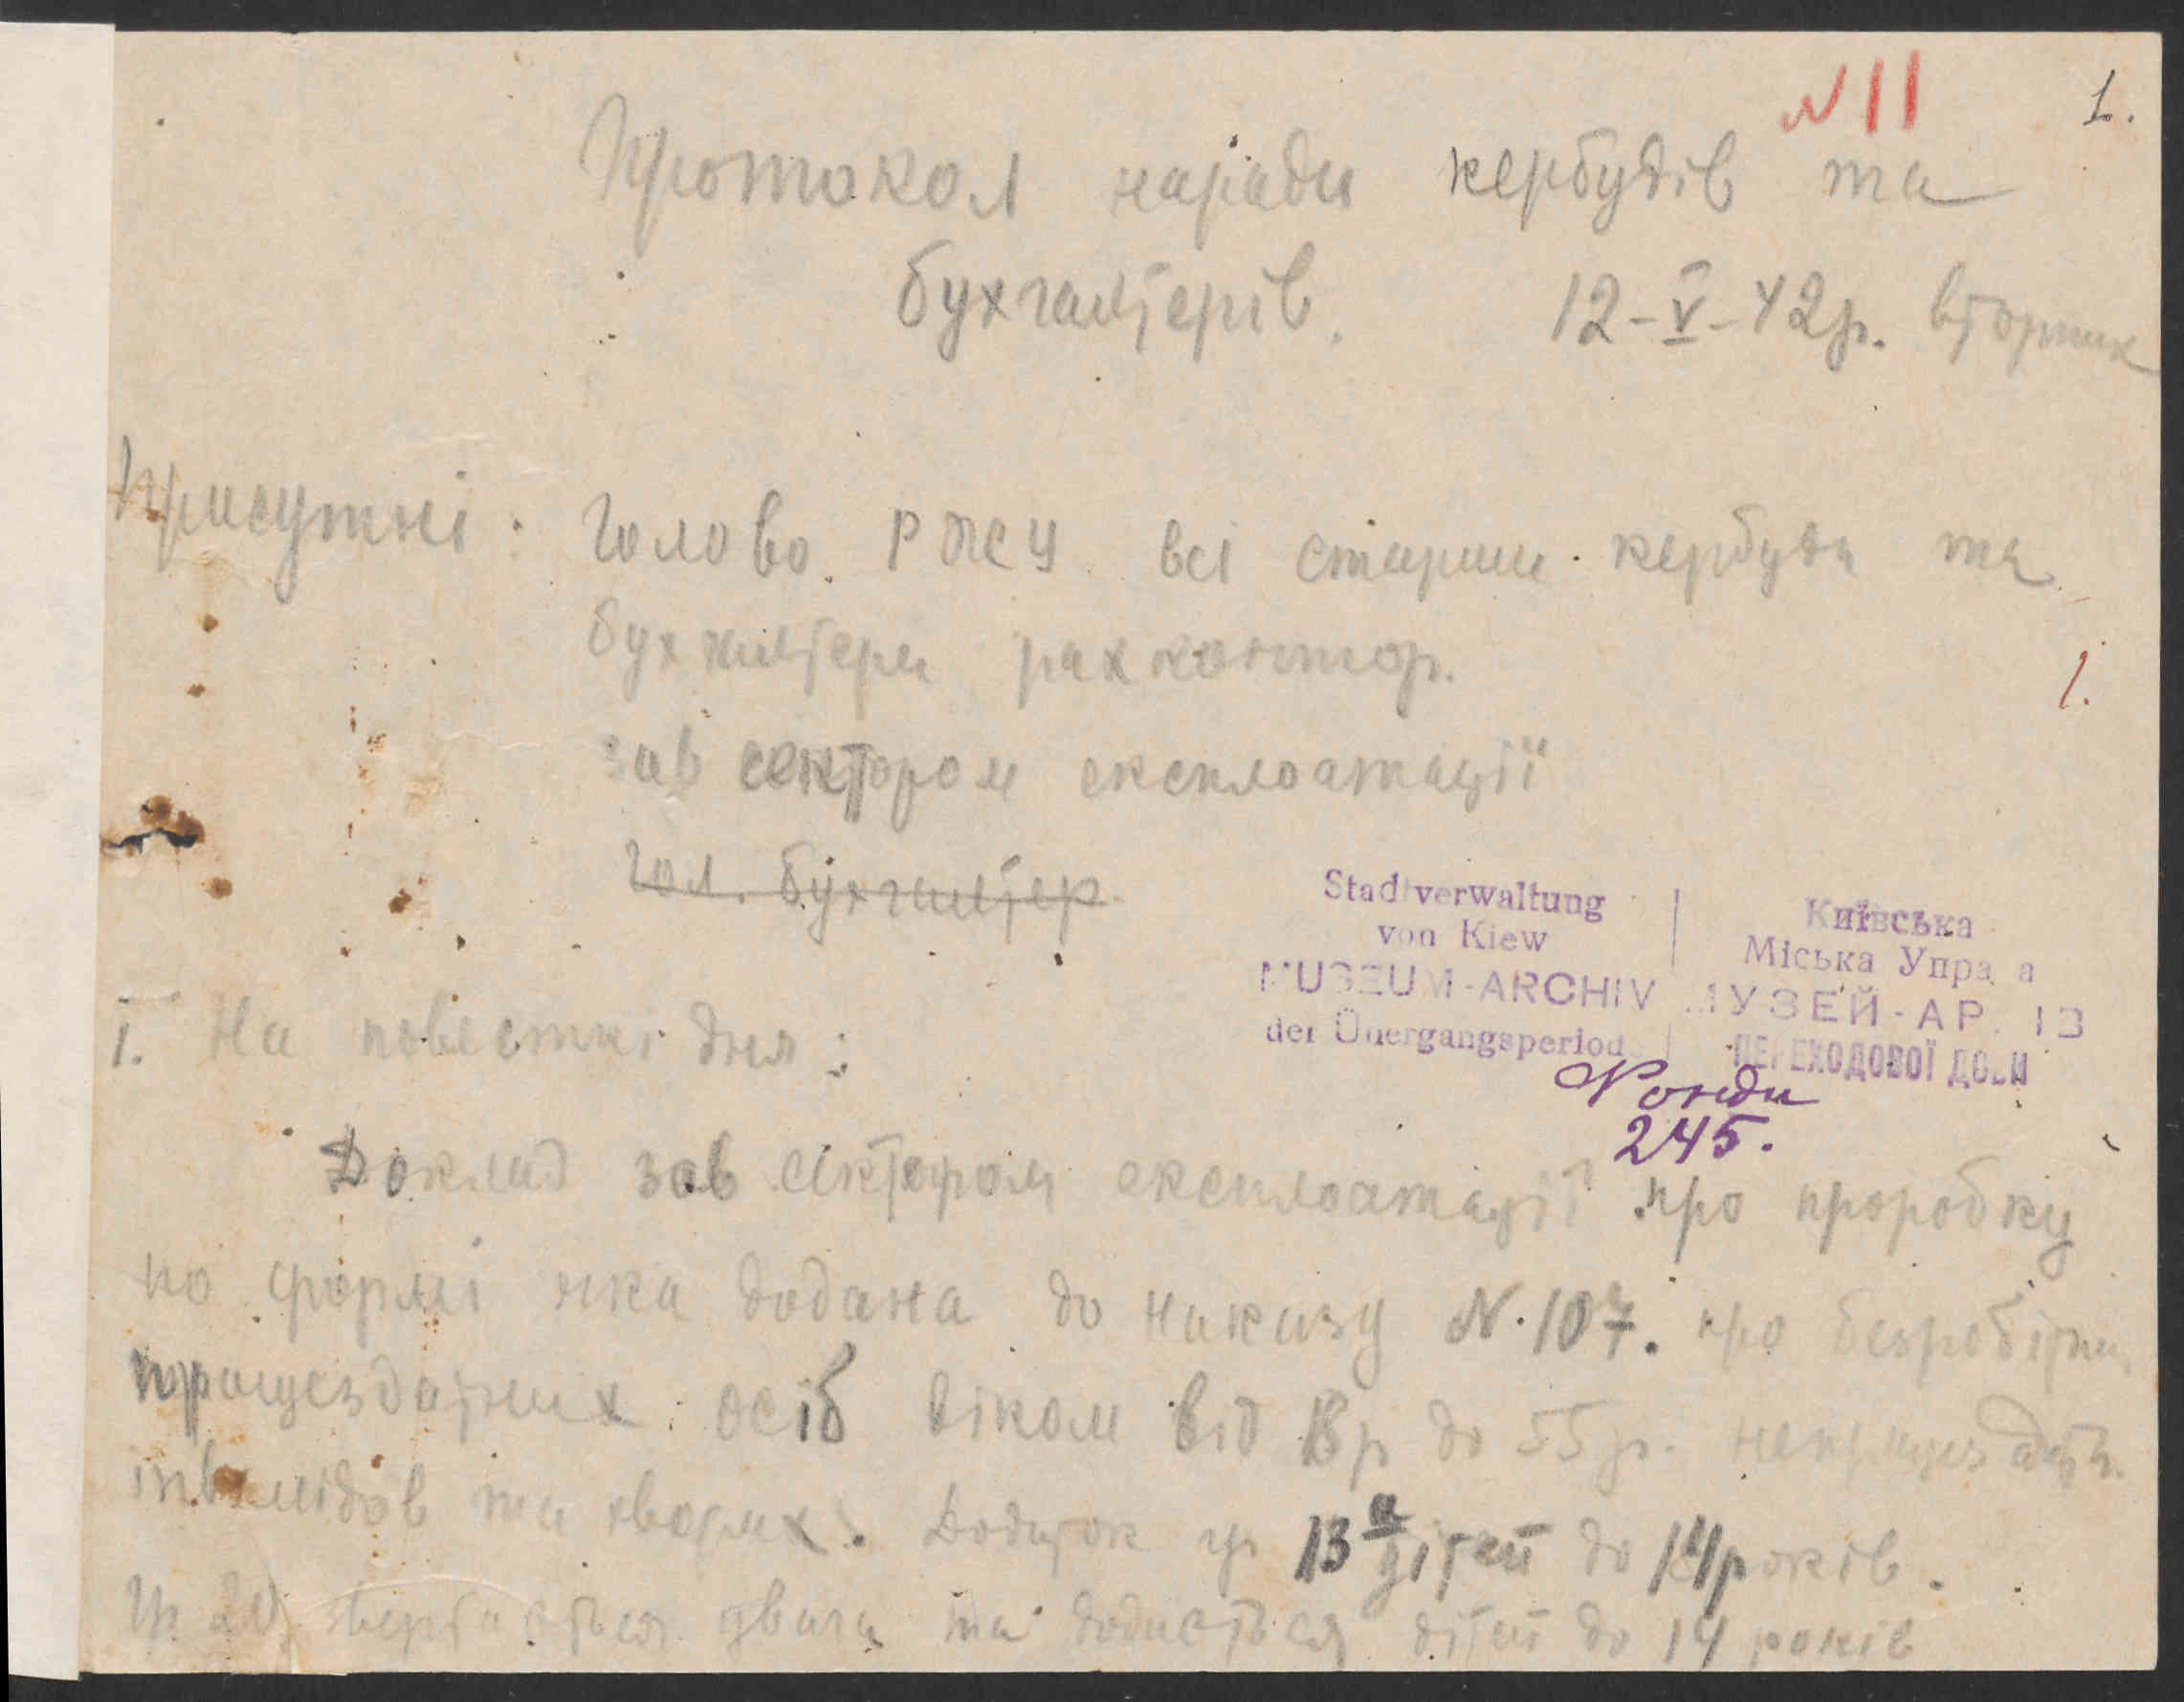 N 11
1.
Протокол наради кербудів та
бухгалтерів. 12-V-42р. вторник
Присутні: Голова РЖУ всі старши кербуди та
бухгалтери рахконтор.
1.
зав сектором експлоатації
гол. бухгалтер
Stadtverwaltung
von Kiew
MUSEUM-ARCHIV
der Übergangsperiod
Київська
Міська Управа
МУЗЕЙ-АРХІВ
ПЕРЕХОДОВОЇ ДОБИ
245.
I. На повесткі дня:
Доклад зав сектором експлоатації про проробку
по формі яка додана до наказу N. 107. про безробітн.
працездатних осіб віком від р до 55 р. непрацездатн.
інвалідов та хворих. Додаток гр 13а дітей до 14 років.
гр. 20 та додається дітей до 14 років